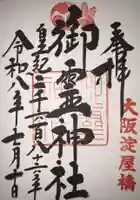 奉拝
大阪淀屋橋
御霊神社
皇紀二千六百八十六年
令和八年七月十日